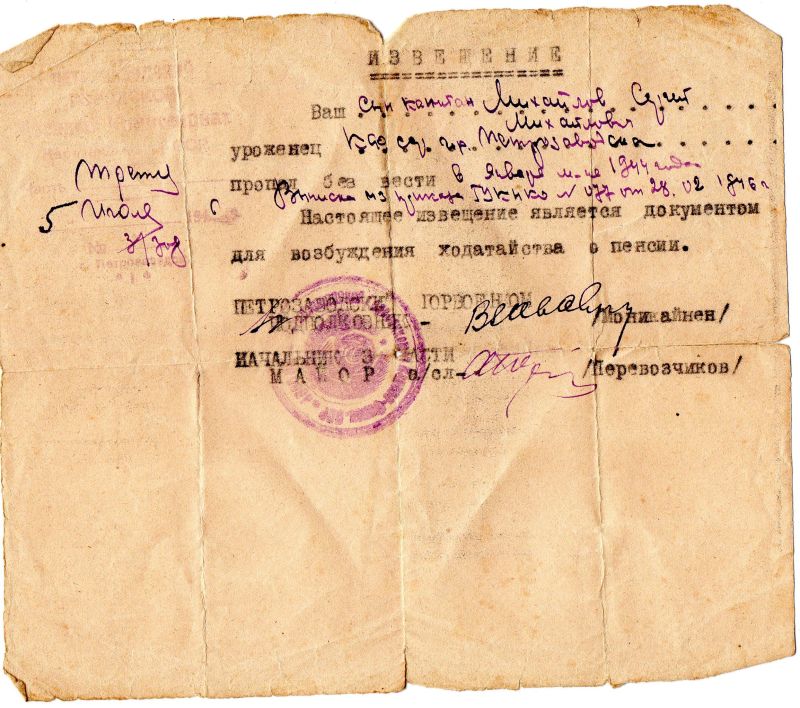 ИЗВЕЩЕНИЕ
Ваш сын капитан Михайлов Сергей
Михайлович
уроженец КФССР. гр. Петрозаводска
пропал без вести в январе м-це 1944 года
Выписка из приказа ГУКНКО № 077 от 28.02 1946 г
Настоящее извещение является документом
для возбуждения ходатайства о пенсии.
ПЕТРОЗАВОДСКИЙ ГОРВОЕНКОМ
ПОДПОЛКОВНИК - /Моникайнен/
НАЧАЛЬНИК 3 ЧАСТИ
МАЙОР а/сл- /Перевозчиков/
5